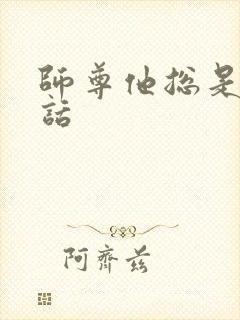 師尊他總是
話
阿齊茲